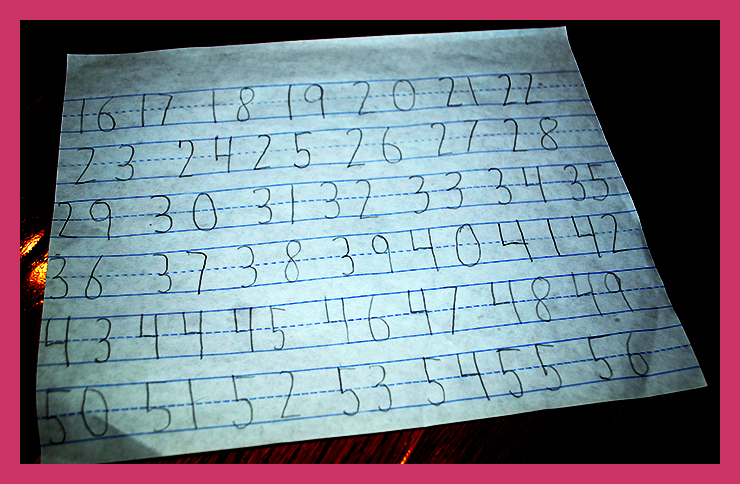 16 17 18 19 20 21 22
23 24 25 26 27 28
29 30 31 32 33 34 35
36 37 38 39 40 41 42
43 44 45 46 47 48 49
50 51 52 53 54 55 56